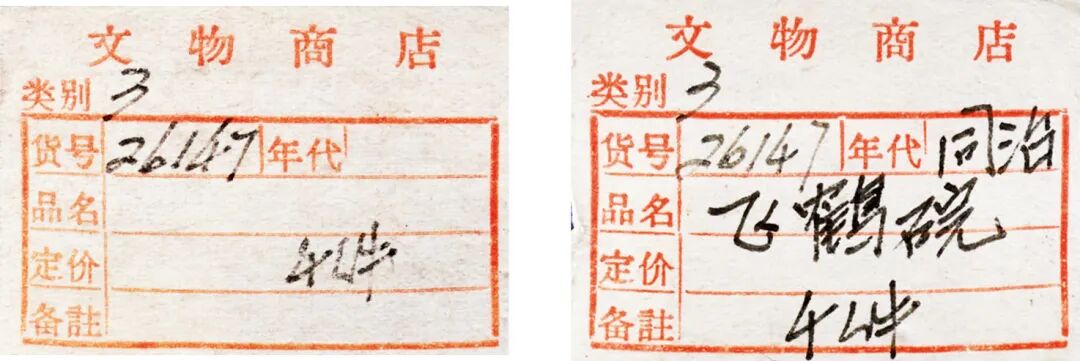 文物商店
类别 3
货号 26147 年代
品名
定价 4件
备註
文物商店
类别 3
货号 26147 年代 同治
品名 飞鹤碗
定价
备註 4件